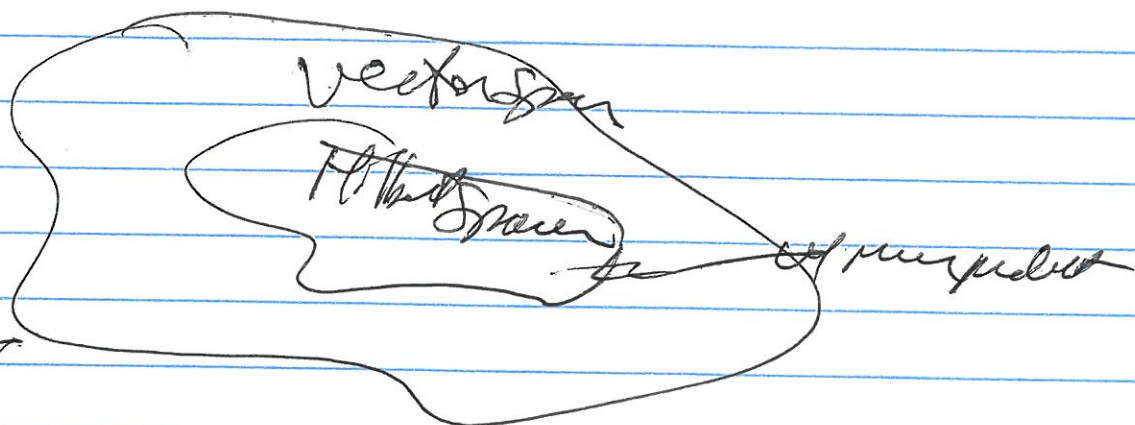 Vector Spaces
Hilbert Spaces
w/ inner product